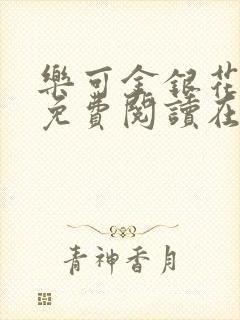 樂可金銀花
免費閱讀在
青神香月